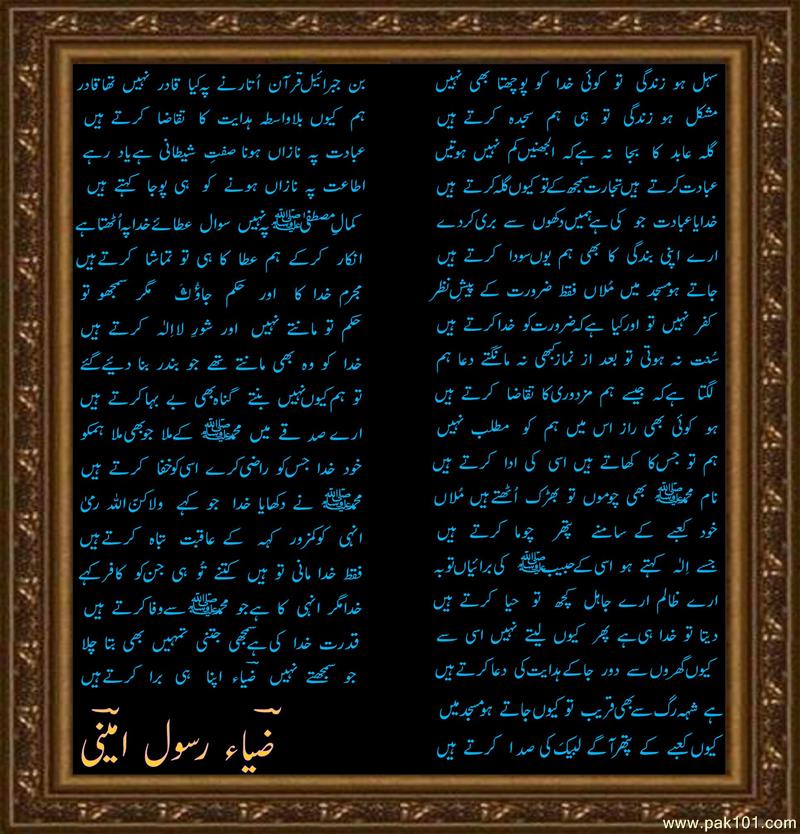 سہل ہو زندگی تو کوئی خدا کو پوچھتا بھی نہیں
مشکل ہو زندگی تو ہی ہم سجدہ کرتے ہیں
گلہ عابد کا بجا نہ ہے کہ الجھنیں کم نہیں ہوتیں
عبادت کرتے ہیں تجارت سمجھ کے تو کیوں گلہ کرتے ہیں
خدایا عبادت جو کی ہے ہمیں دکھوں سے بری کر دے
ارے اپنی بندگی کا بھی ہم یوں سودا کرتے ہیں
جاتے ہو مسجد میں مُلاں فقط ضرورت کے پیشِ نظر
کفر نہیں تو اور کیا ہے کہ ضرورت کو خدا کرتے ہیں
سُنت نہ ہوتی تو بعد از نماز کبھی نہ مانگتے دعا ہم
لگتا ہے کہ جیسے ہم مزدوری کا تقاضا کرتے ہیں
ہو کوئی بھی راز اس میں ہم کو مطلب نہیں
ہم تو جس کا کھاتے ہیں اسی کی ادا کرتے ہیں
نام محمدﷺ بھی چوموں تو بھڑک اُٹھتے ہیں مُلاں
خود کعبے کے سامنے پتھر چوما کرتے ہیں
جسے اِلٰہ کہتے ہو اسی کے حبیبﷺ کی برائیاں توبہ
ارے ظالم ارے جاہل کچھ تو حیا کرتے ہیں
دیتا تو خدا ہی ہے پھر کیوں لیتے نہیں اسی سے
کیوں گھروں سے دور جا کے ہدایت کی دعا کرتے ہیں
ہے شہہ رگ سے بھی قریب تو کیوں جاتے ہو مسجد میں
کیوں کعبے کے پتھر آگے لبیک کی صدا کرتے ہیں
بن جبرائیل قرآن اُتارنے پہ کیا قادر نہیں تھا قادر
ہم کیوں بلاواسطہ ہدایت کا تقاضا کرتے ہیں
عبادت پہ نازاں ہونا صفتِ شیطانی ہے یاد رہے
اطاعت پہ نازاں ہونے کو ہی پوجا کہتے ہیں
کمالِ مصطفیٰﷺ پہ نہیں سوال عطائے خدا پہ اُٹھتا ہے
انکار کر کے ہم عطا کا ہی تو تماشا کرتے ہیں
مجرم خدا کا اور حکم جاؤُکَ مگر سمجھو تو
حکم تو مانتے نہیں اور شورِ لا اِلٰہ کرتے ہیں
خدا کو وہ بھی مانتے تھے جو بندر بنا دیئے گئے
تو ہم کیوں نہیں بنتے گناہ بھی بے بہا کرتے ہیں
ارے صدقے میں محمدﷺ کے ملا جو بھی ملا ہمکو
خود خدا جس کو راضی کرے اسی کو خفا کرتے ہیں
محمدﷺ نے دکھایا خدا جو کہے ولاکنّ اللہ رمیٰ
انہی کو کمزور کہہ کے عاقبت تباہ کرتے ہیں
فقط خدا مانی تو ہیں کتنے تُو ہی جن کو کافر کہے
خدا مگر انہی کا ہے جو محمدﷺ سے وفا کرتے ہیں
قدرت خدا کی ہے سمجھی جتنی تمہیں بھی بتا چلا
جو سمجھتے نہیں ضیاء اپنا ہی برا کرتے ہیں
ضیاء رسول امینی
www.pak101.com